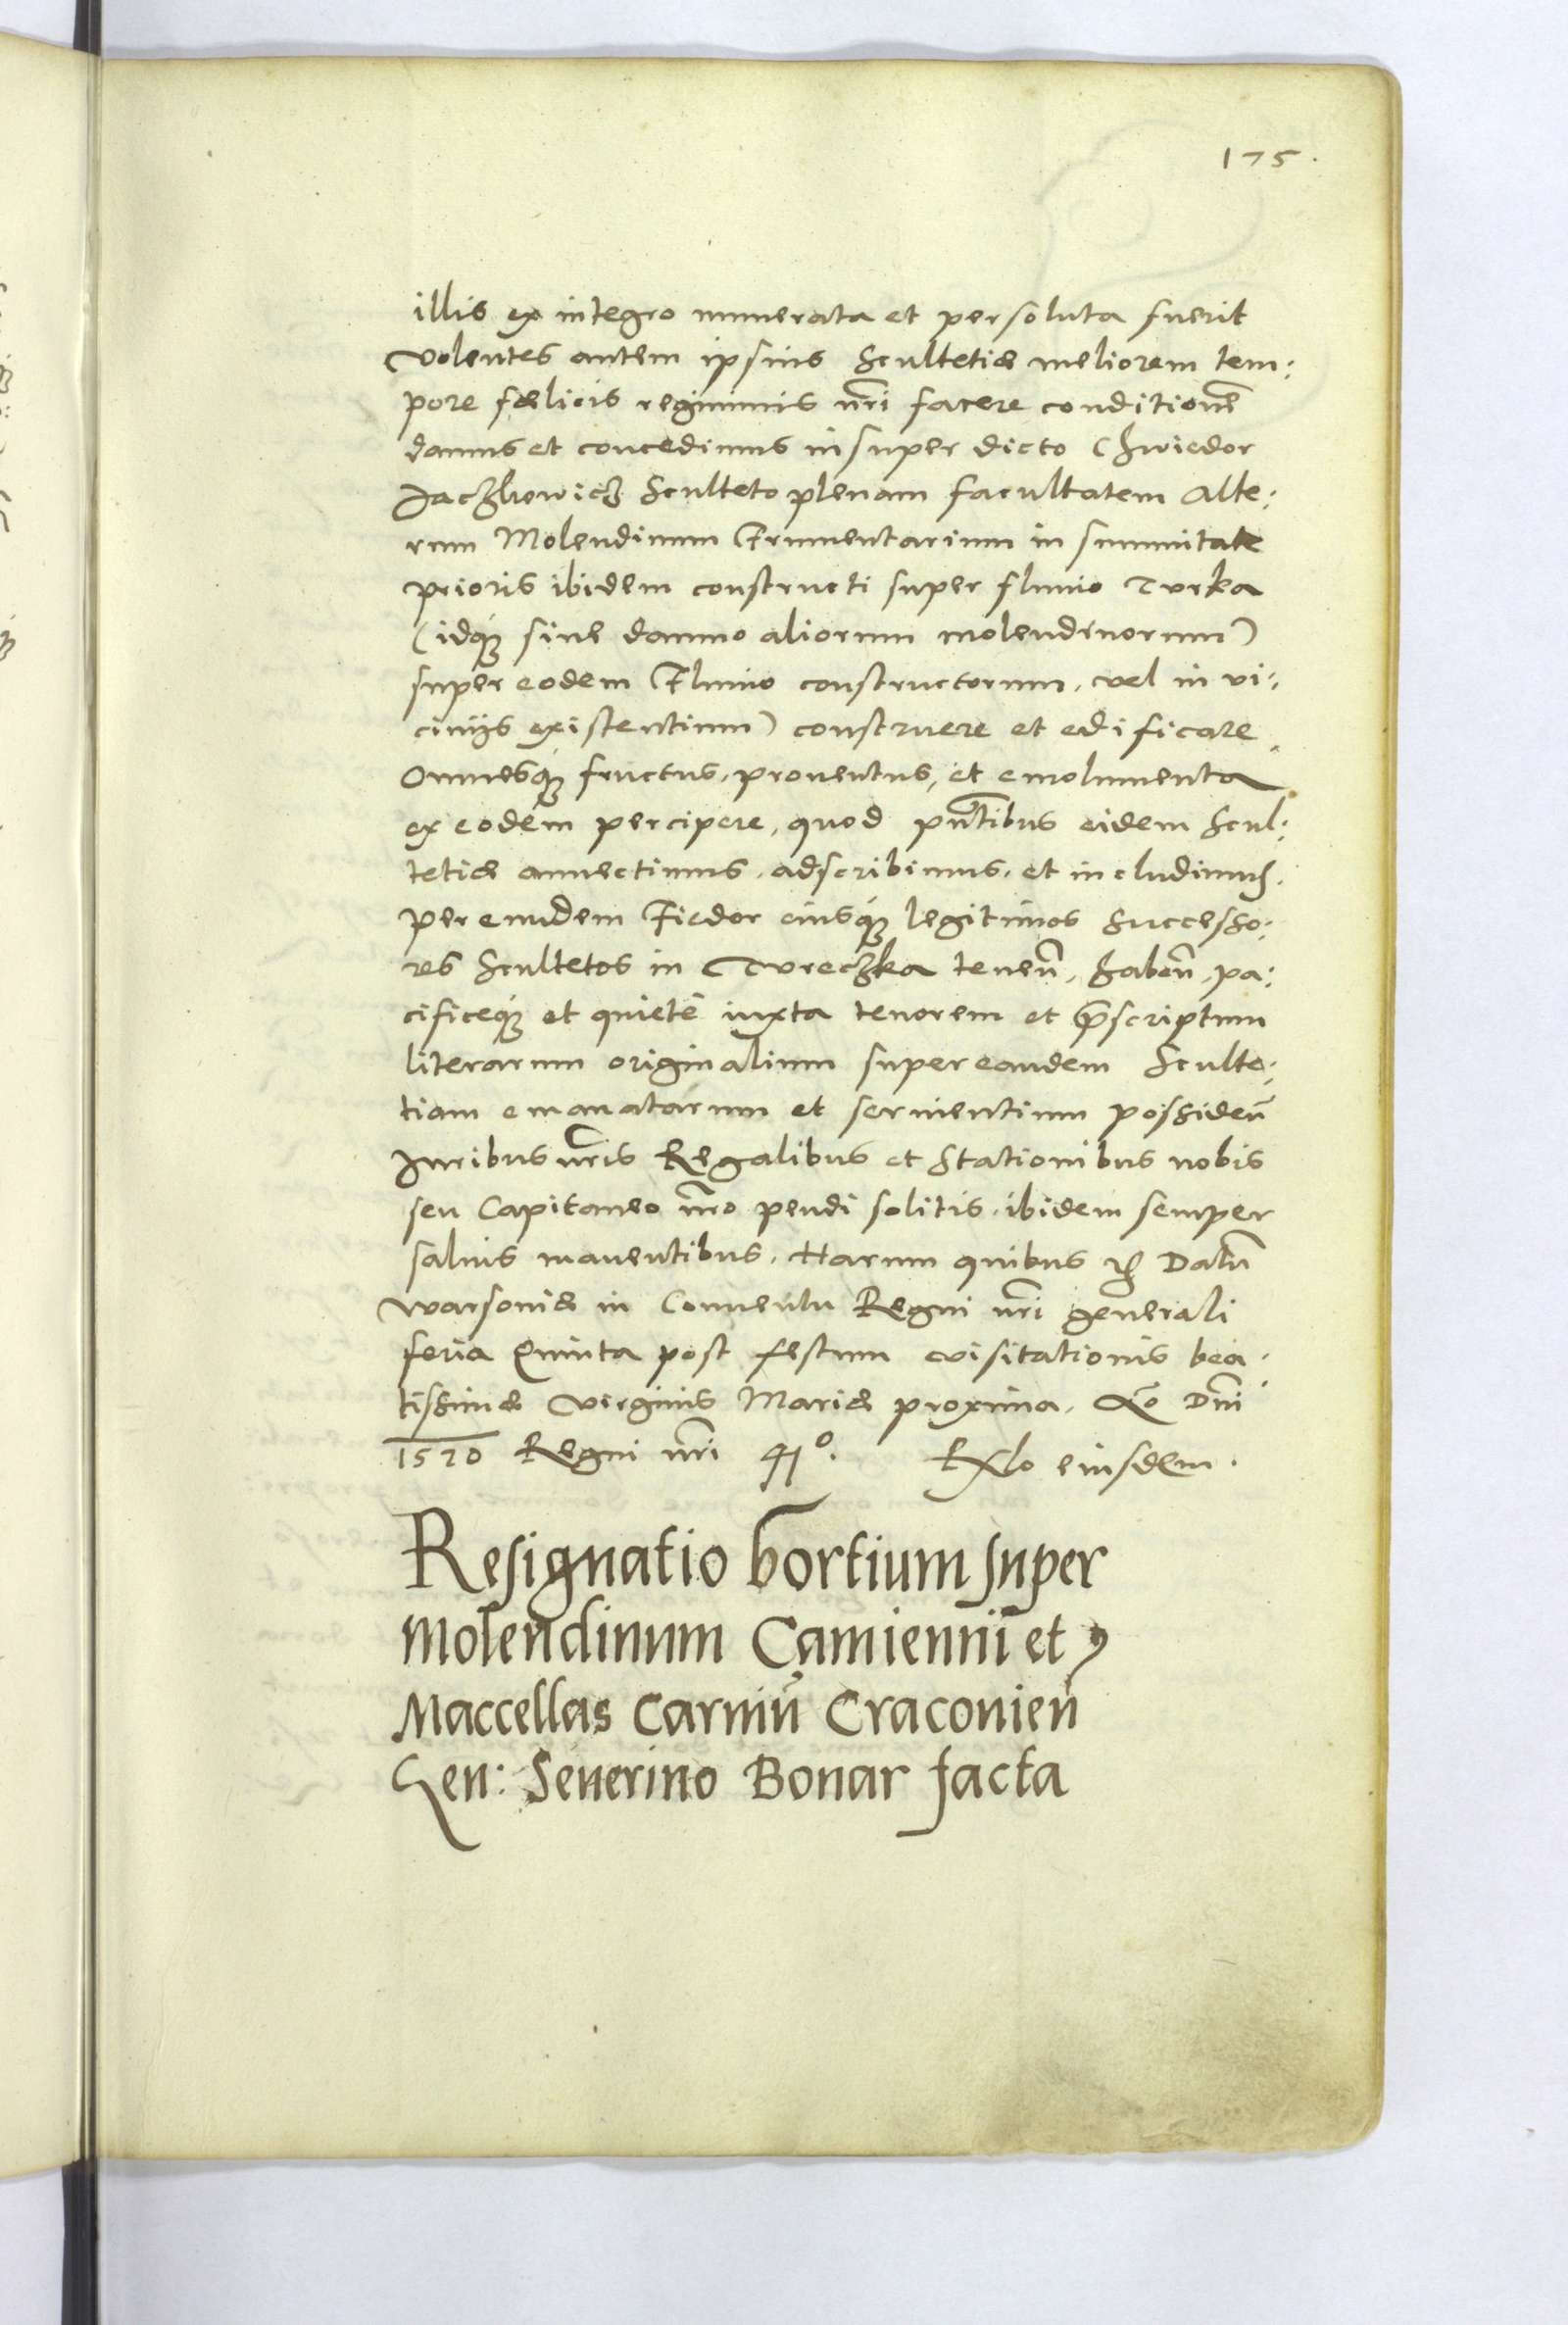 175.
illis ex integro numerata et persoluta fuerit
Volentes autem ipsius Scultetiæ meliorem tem:
pore fælicis regiminis nr̃i facere conditionẽ
damus et concedimus insuper dicto Chwiedor
Jaczkowicz Sculteto plenam facultatem Alte:
rum Molendinum Frumentarium in summitate
prioris ibidem constructi super fluuio Turka
(idq́ue sine damno aliorum molendinorum)
super eodem Fluuio constructorum, vel in vi:
cinijs existentium) construere et edificare
Omnesq́ue fructus, prouentus, et emolumenta
ex eodem percipere, quod pñtibus eidem Scul:
tetiæ annectimus, adscribimus, et includimus.
per eundem Fiedor eiusq́ue legitimos Successo:
res Scultetos in Tureczka teneñ, habeñ, pa:
cificeq́ue et quietè iuxta tenorem et p̃scriptum
literarum originalium super eandem Sculte:
tiam emanatarum et seruientium possideñ
Juribus nr̃is Regalibus et Stationibus nobis
seu Capitaneo nr̃o pendi solitis, ibidem semper
saluis manentibus. Harum quibus etc Datũ
Warsouiæ in Conuentu Regni nr̃i generali
feria Quinta post festum visitationis bea:
tissimæ Virginis Mariæ proxima. Aõ Dñi
1570 Regni nr̃i 41º. Rẽlo eiusdem.
Resignatio bortium super
Molendinum Camiennii et
Maccellas Carniũ Cracouieñ
Gen: Seuerino Bonar facta